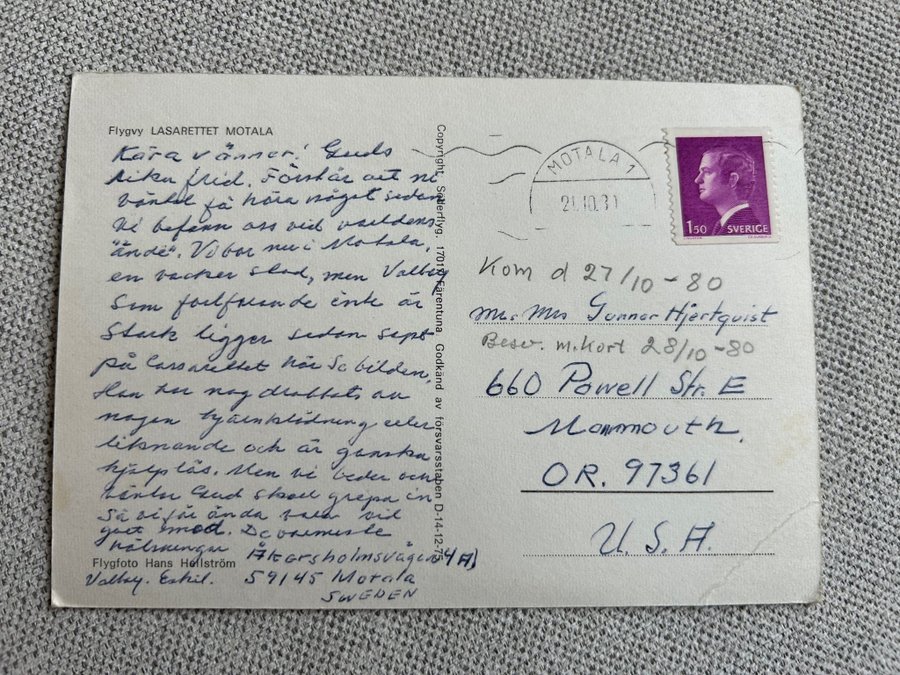 Flygvy LASARETTET MOTALA
Kära vänner! Guds
rika frid. Förstår att ni
väntat få höra något sedan
Vi befann oss vid världens
"ände". Vi bor nu i Motala,
en vacker stad, men Valby
som fortfarande inte är
stark ligger sedan sept
på lassarettet här Se bilden.
Han har nog drabbats av
någon hjärnblödning eller
liknande och är ganska
hjälplös. Men vi beder och
väntar Gud skall gripa in
Så vi får ändå vara vid
gott mod. De varmaste
hälsningar
Flygfoto Hans Hellström
Valby. Eskil.
Åkersholmsvägen 4A)
59145 Motala
SWEDEN
Copyright: Söderflyg. 1701 Färentuna Godkänd av försvarsstaben D-14-12-75
MOTALA 1
21.10.80
150 SVERIGE
Kom d 27/10-80
Mr. Mrs Gunnar Hjertquist
Besv. m. kort 28/10-80
660 Powell Str. E
Monmouth,
OR. 97361
U. S. A.